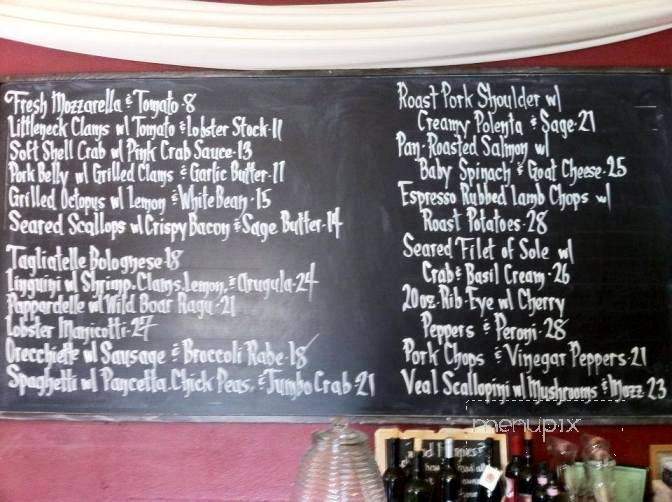 Fresh Mozzarella & Tomato-8
Littleneck Clams w/ Tomato & Lobster Stock-11
Soft Shell Crab w/ Pink Crab Sauce-13
Pork Belly w/ Grilled Clams & Garlic Butter-11
Grilled Octopus w/ Lemon & White Bean-15
Seared Scallops w/ Crispy Bacon & Sage Butter-14
Tagliatelle Bolognese-18
Linguini w/ Shrimp, Clams, Lemon, & Arugula-24
Pappardelle w/ Wild Boar Ragu-21
Lobster Manicotti-27
Orecchiette w/ Sausage & Broccoli Rabe-18
Spaghetti w/ Pancetta, Chick Peas, & Jumbo Crab-21
Roast Pork Shoulder w/
Creamy Polenta & Sage-21
Pan-Roasted Salmon w/
Baby Spinach & Goat Cheese-25
Espresso Rubbed Lamb Chops w/
Roast Potatoes-28
Seared Filet of Sole w/
Crab & Basil Cream-26
20oz. Rib-Eye w/ Cherry
Peppers & Peroni-28
Pork Chops & Vinegar Peppers-21
Veal Scallopini w/ Mushrooms & Mozz 23
menupix